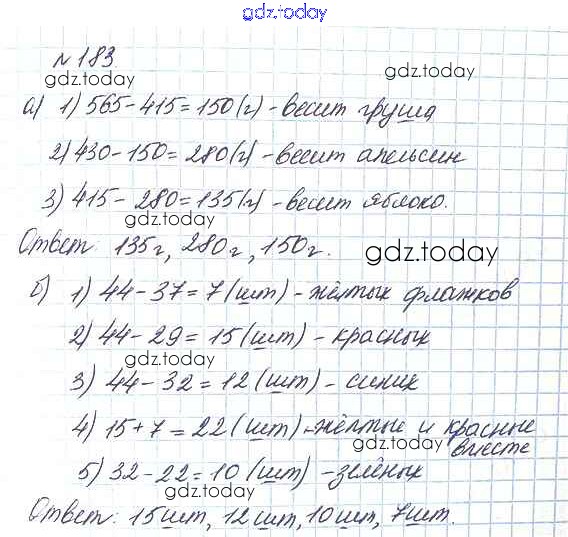 gdz.today
№ 183
gdz.today
gdz.today
а) 1) 565-415=150(г) - весит груша
2) 430-150=280(г) - весит апельсин
3) 415-280=135(г) - весит яблоко.
gdz.today
Ответ: 135г, 280г, 150г.
gdz.today
б) 1) 44-37=7(шт) - жёлтых флажков
2) 44-29=15(шт) - красных
gdz.today
3) 44-32=12(шт) - синих
4) 15+7=22(шт) - жёлтые и красные
вместе
gdz.today
5) 32-22=10(шт) - зелёных
gdz.today
Ответ: 15шт, 12шт, 10шт, 7шт.